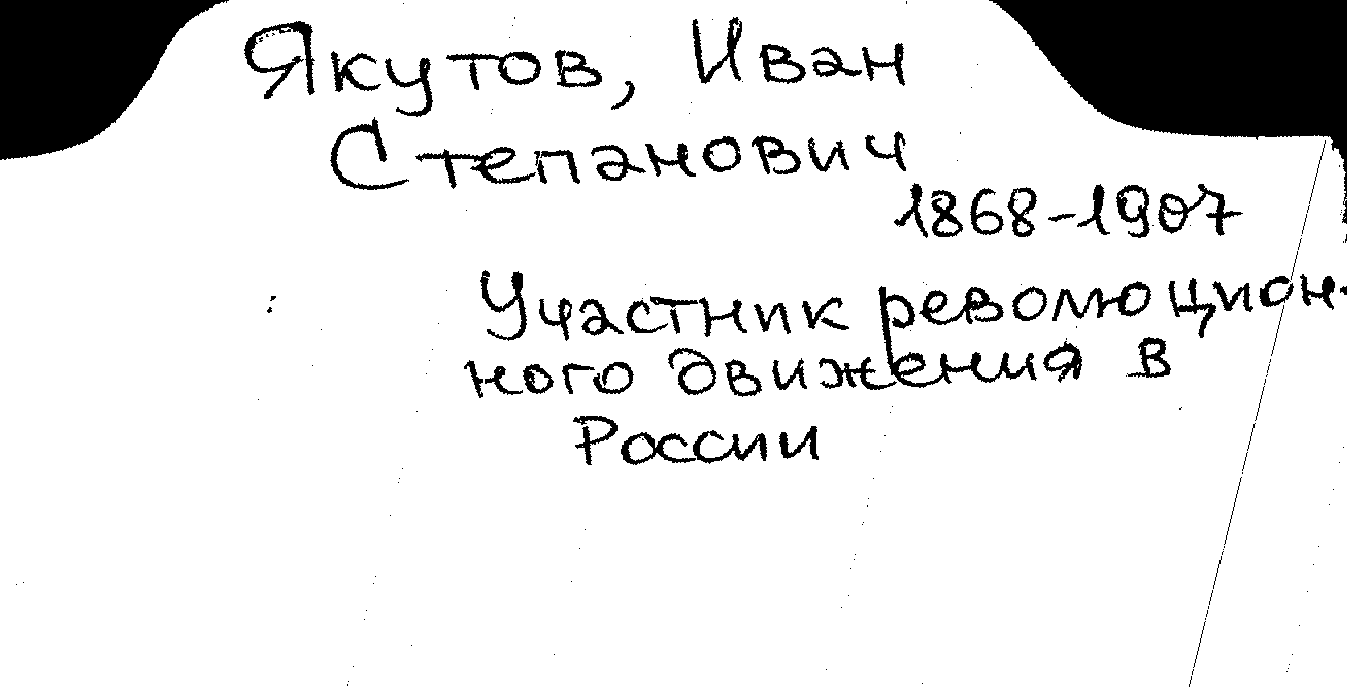 Якутов, Иван
Степанович
1868-1907
Участник революцион-
ного движения в
России